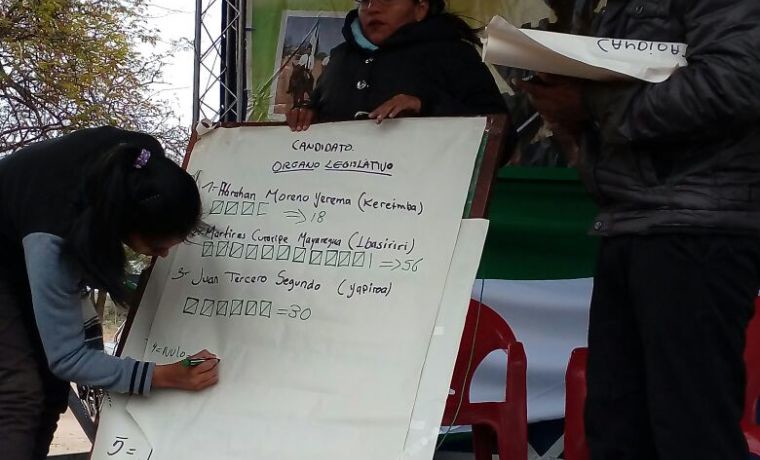 CANDIDATO.
ORGANO LEGISLATIVO
1- Abrahan Moreno Yerema (Kereimba)
=> 18
Martires Cuaripe Mayaregua (Ibasiriri)
=> 56
3- Juan Tercero Segundo (Yapiroa)
= 30
4= Nulo =
5=